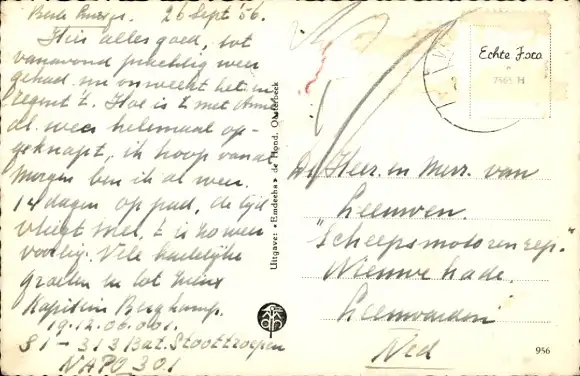 Beste 26 Sept 56.
Hier alles goed, tot
vanavond prachtig weer
gehad nu onweert het en
regent 't. Hoe is 't met
al weer helemaal op-
geknapt, ik hoop van al
Morgen ben ik al weer
14 dagen op pad, de tijd
vliegt snel, 't is zo weer
voorbij. Vele hartelijke
groeten en tot ziens
Kapitein Bergkamp.
19.12.06.001.
S1 - 313 Bat. Stoottroepen
NAPO 301
Uitgave: «Emdeeha» de Hond, Oosterbeek
Echte Foto
7565 H
De Heer en Mevr. van
Leeuwen.
"Scheepsmotoren rep."
Nieuwe kade.
Leeuwarden
Ned
956